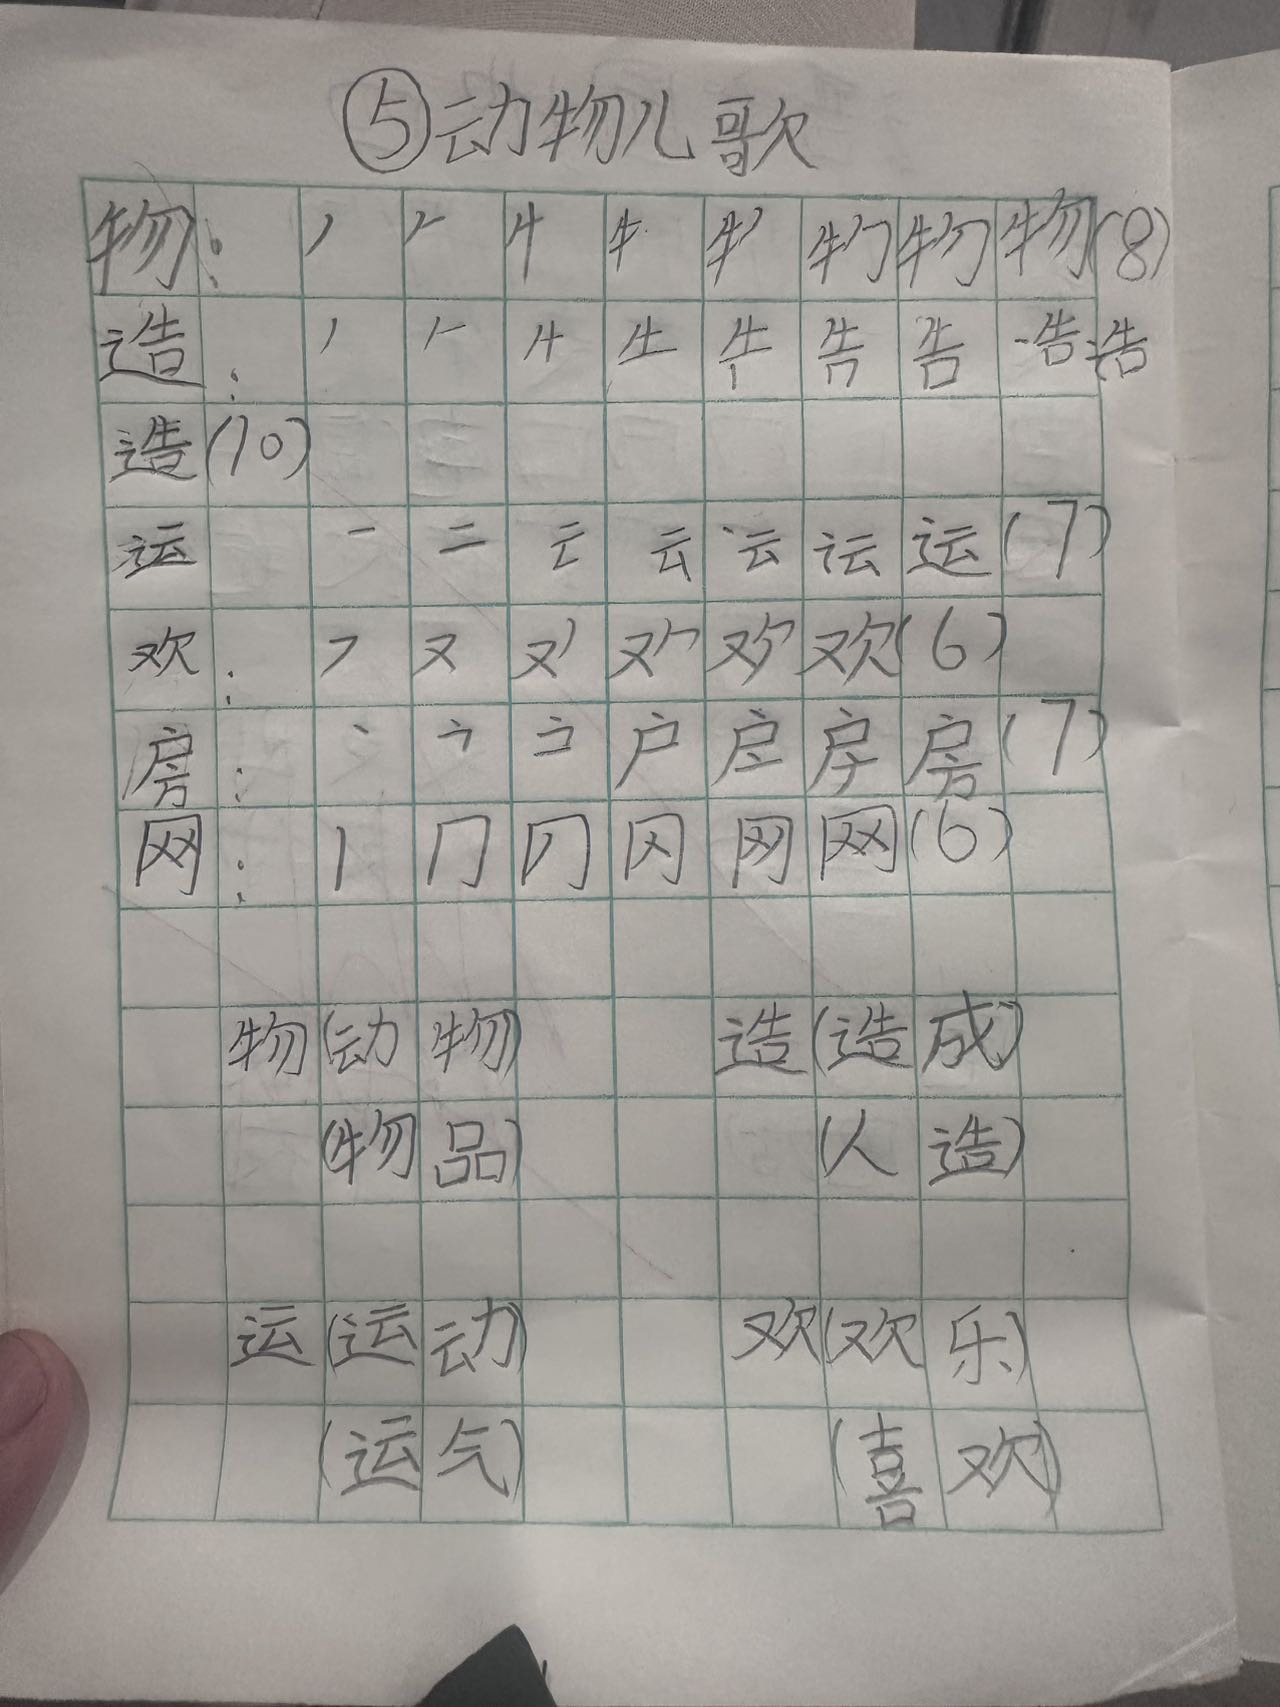 ⑤动物儿歌
物: 丿 𠂉 牛 牜 物 物 物 物(8)
造: 丿 𠂉 牛 告 告 告 造
造(10)
运 一 二 云 云 运 运 运(7)
欢: フ 又 欢 欢 欢 欢(6)
房: 丶 户 房 房 房(7)
网: 丨 冂 冈 网 网(6)
物(动物) 造(造成)
(物品) (人造)
运(运动) 欢(欢乐)
(运气) (喜欢)